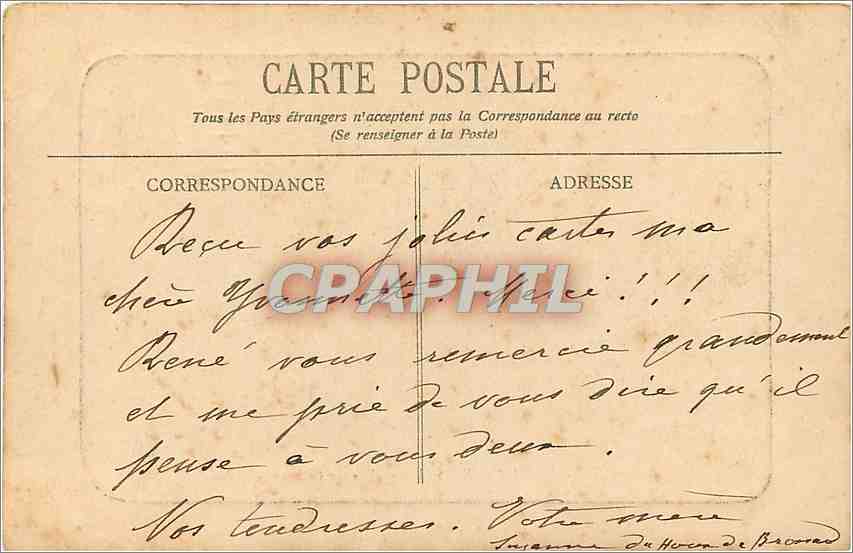 CARTE POSTALE
Tous les Pays étrangers n'acceptent pas la Correspondance au recto
(Se renseigner à la Poste)
CORRESPONDANCE ADRESSE
Reçu vos jolies cartes ma
chère Yvonnette. Merci!!!
CPARPHIL
René vous remercie grandement
et me prie de vous dire qu'il
pense à vous deux.
Nos tendresses. Votre mère
Suzanne du Houx de